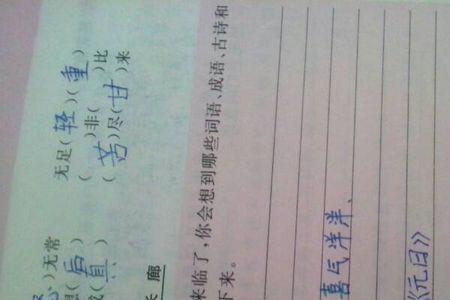 )无常 无足(轻)(重)
( )非( )比
(苦)尽(甘)来
长廊
来临了，你会想到哪些词语、成语、古诗和
下来。
喜气洋洋、
《元日》